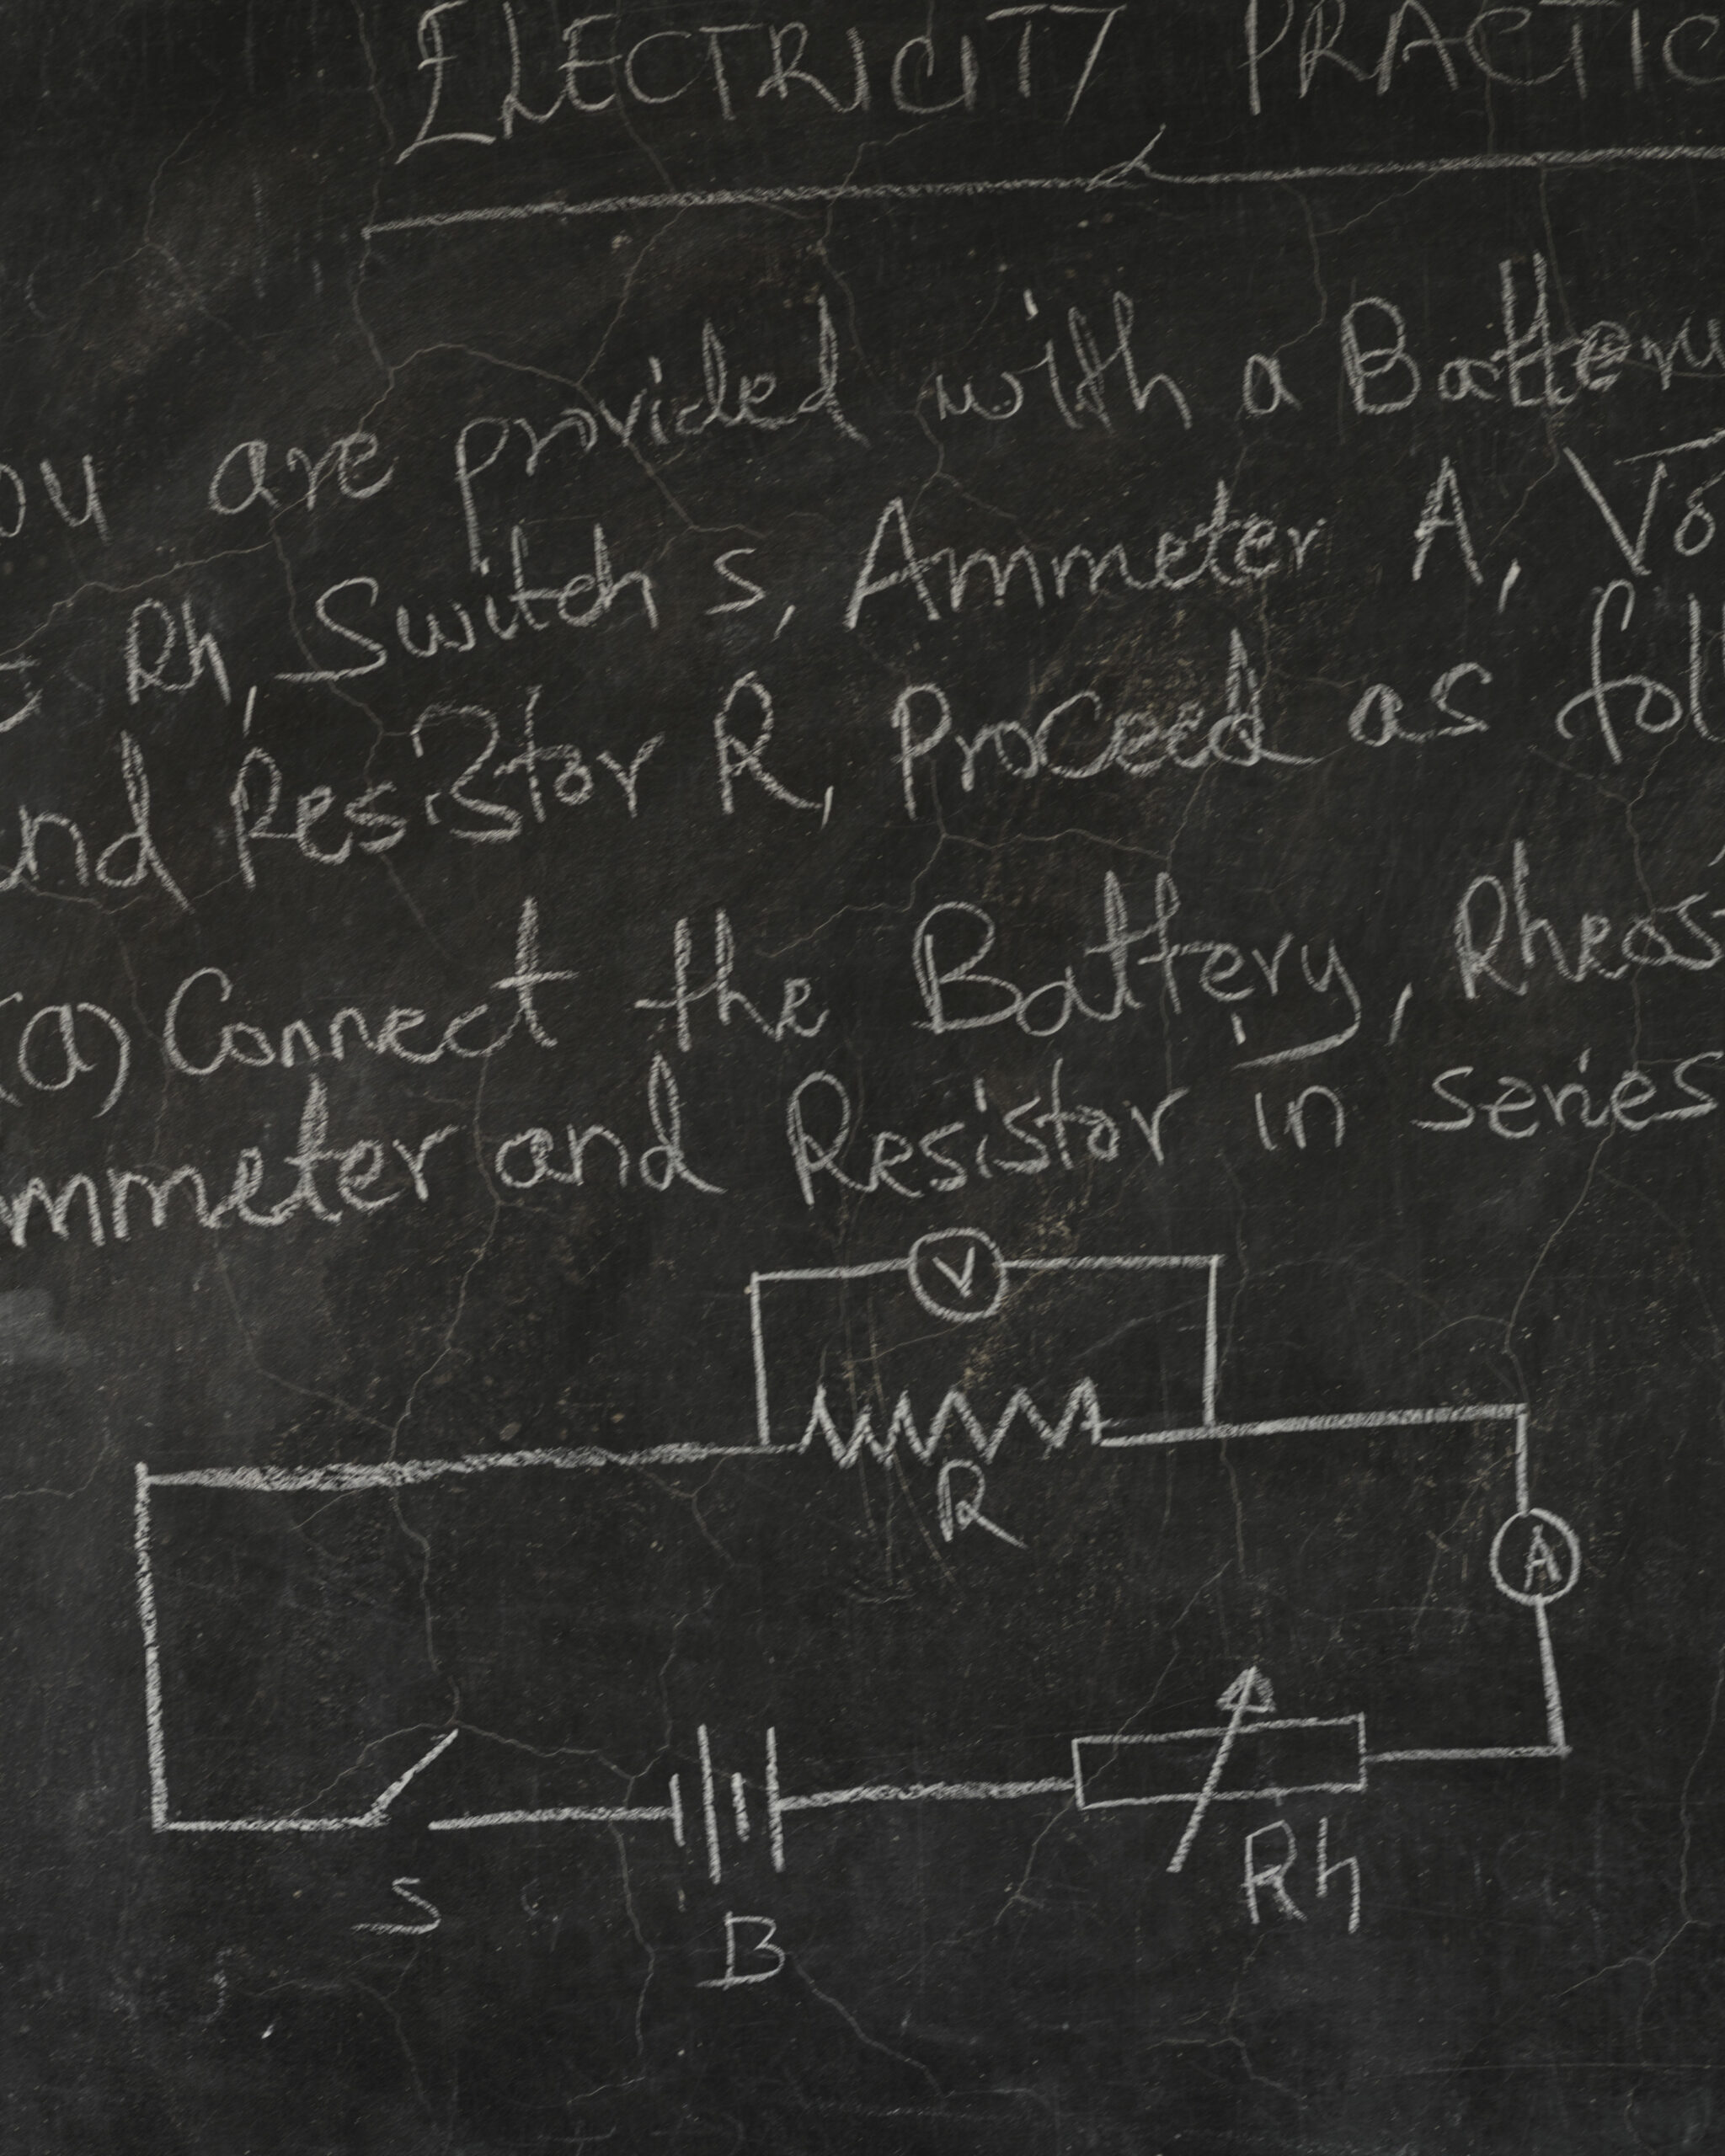 ELECTRICITY PRACTIC
ou are provided with a Battery
t Rh, Switch S, Ammeter A, Vo
nd Resistor R, Proceed as fol
(a) Connect the Battery, Rheos
mmeter and Resistor in series
V
R
A
Rh
S
B